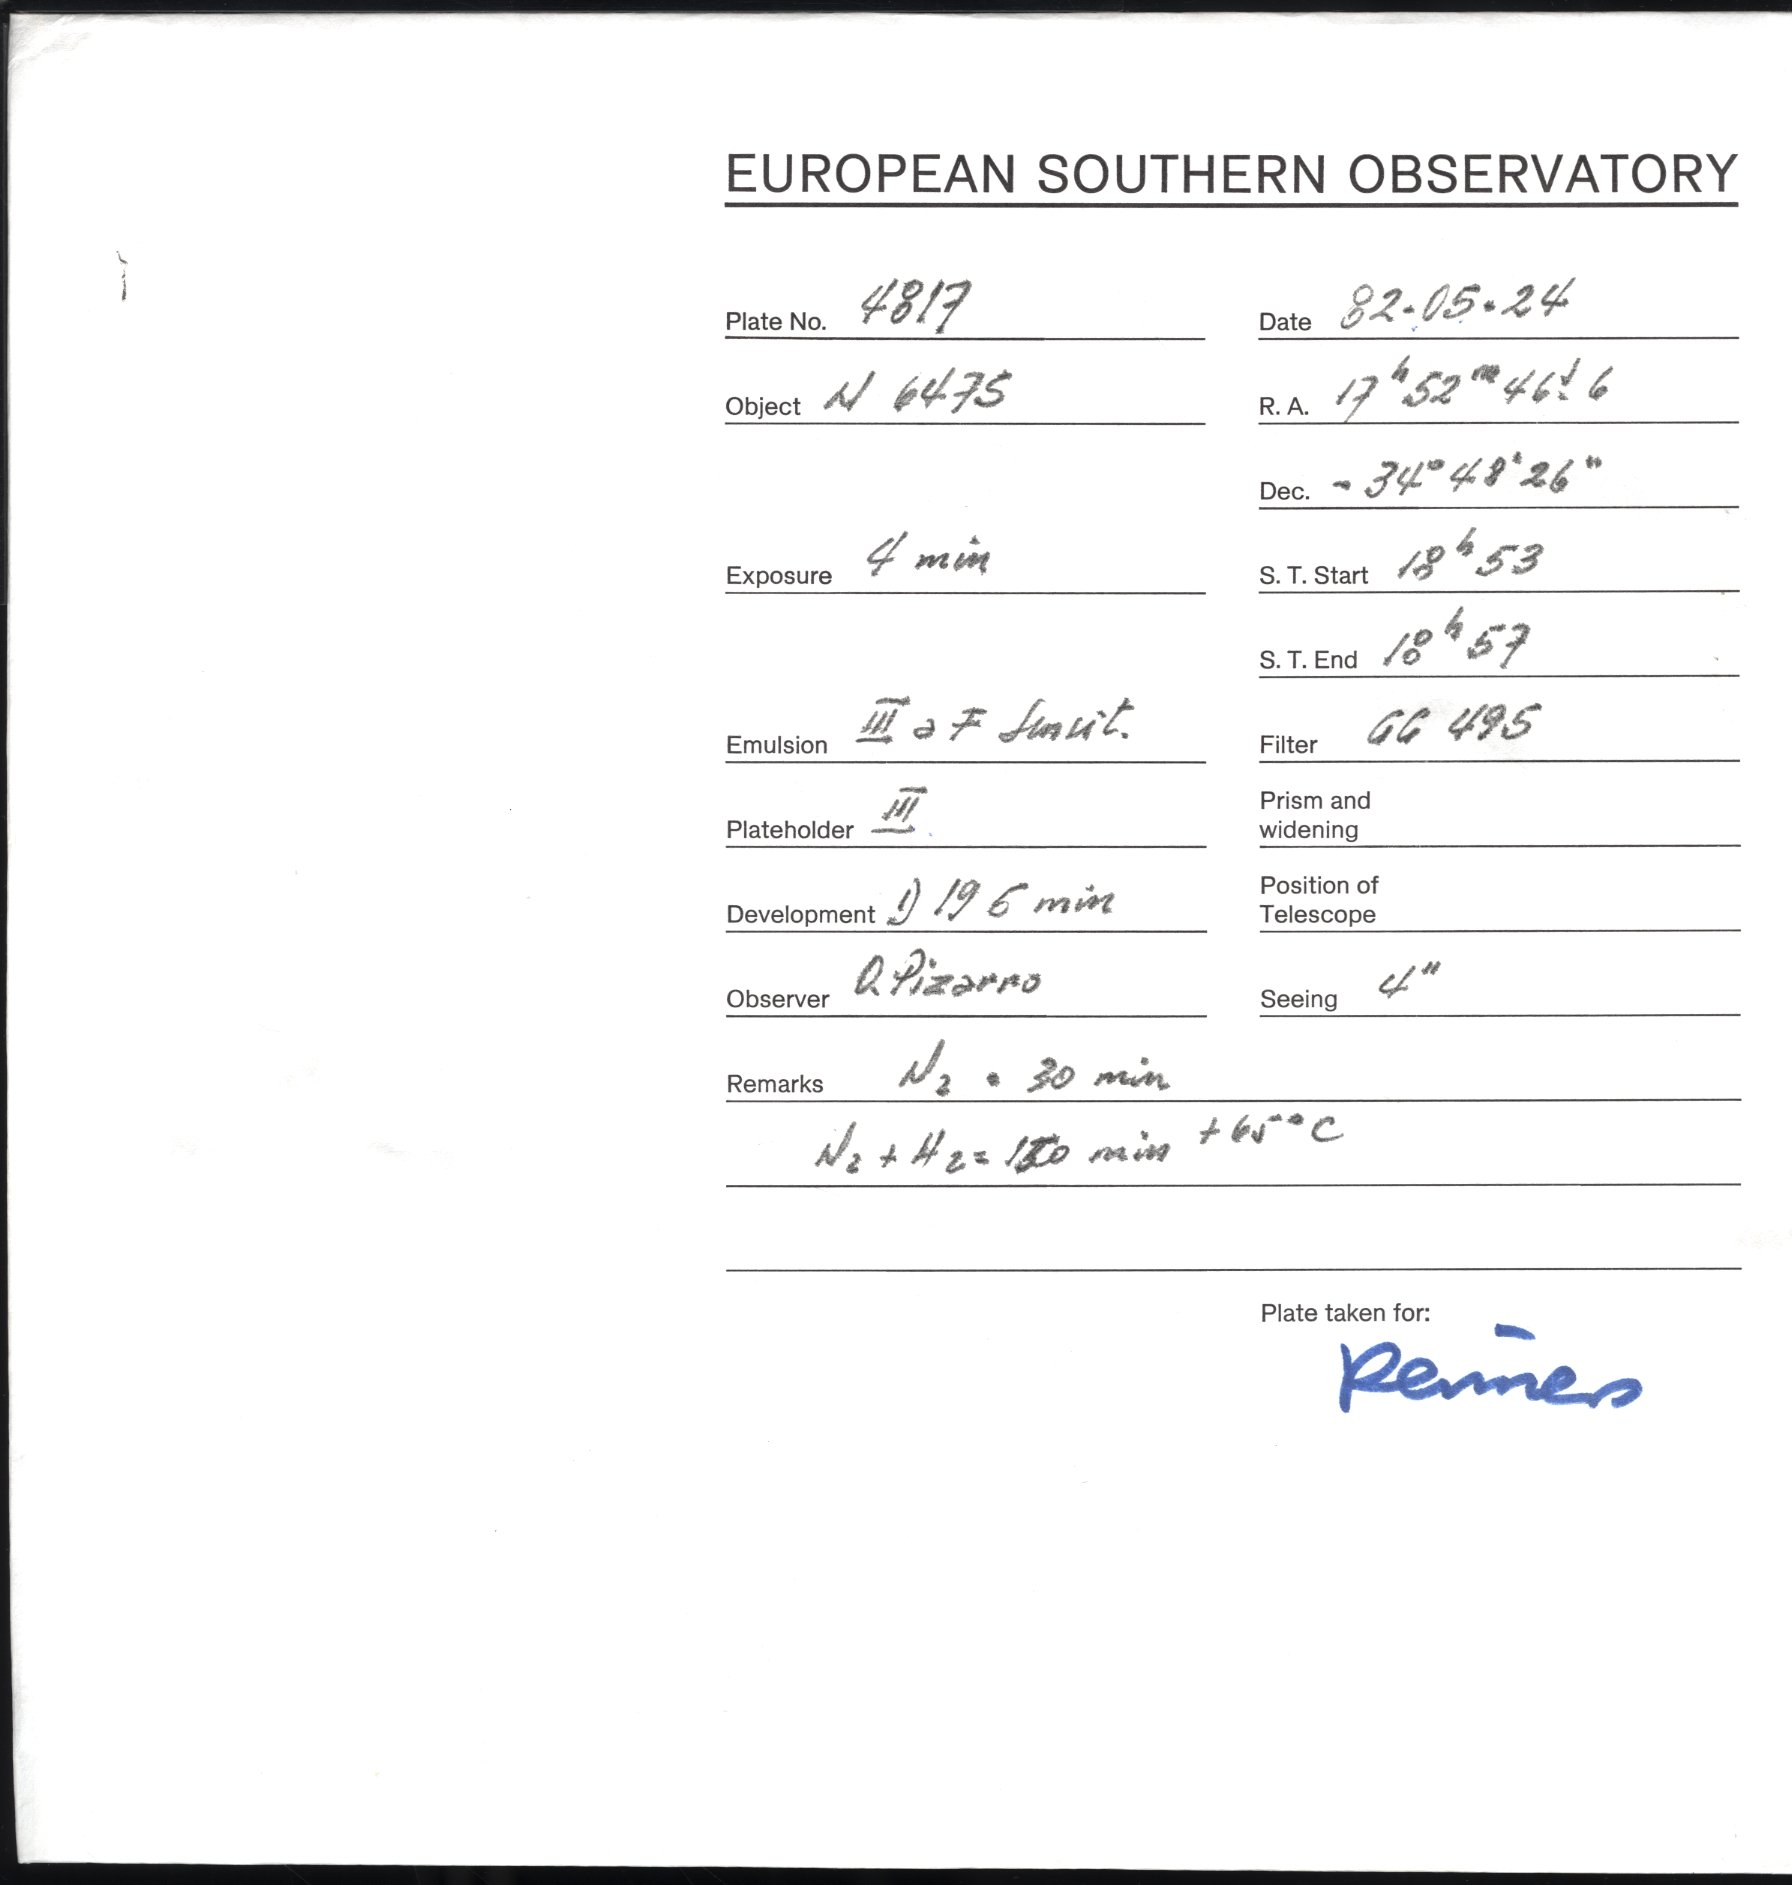 EUROPEAN SOUTHERN OBSERVATORY
Plate No. 4817 Date 82-05-24
Object N 6475 R. A. 17h 52m 46s.6
Dec. - 34° 48' 26"
Exposure 4 min S. T. Start 18h 53
S. T. End 18h 57
Emulsion III a F Filter GG 495
Plateholder III Prism and widening
Development D 19 6 min Position of Telescope
Observer O. Pizarro Seeing 4"
Remarks N2 = 30 min
N2 + H2 = min +65°C
Plate taken for: